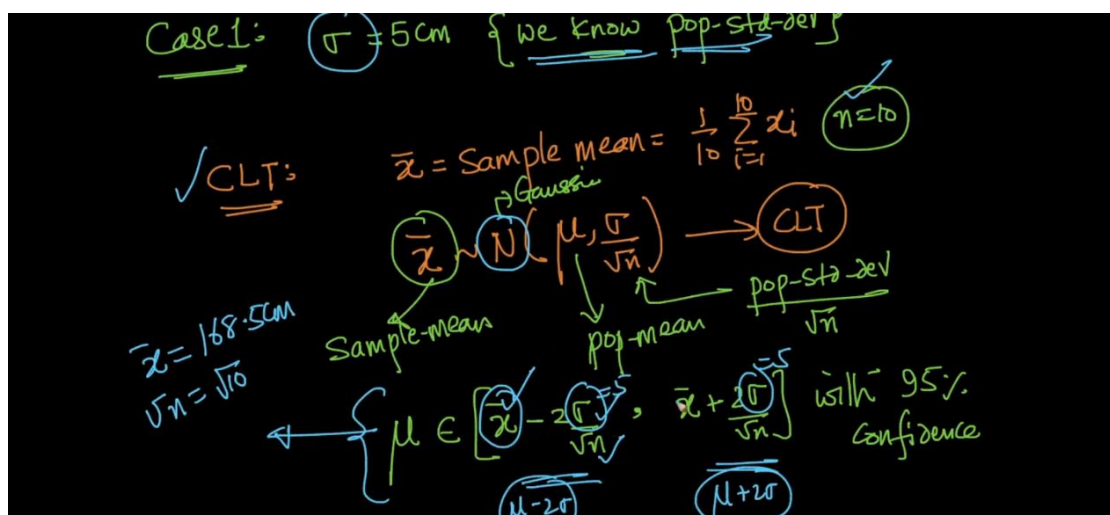 Case1: σ = 5cm {we know pop-std-dev}
CLT: x̄ = Sample mean = 1/10 Σ_{i=1}^{10} xi n=10
Gaussian
x̄ ~ N(μ, σ/√n) → CLT
Sample-mean
pop-mean
pop-std-dev/√n
x̄ = 168.5cm
√n = √10
μ ∈ [x̄ - 2σ/√n, x̄ + 2σ/√n] with 95% confidence
=5
=5
μ-2σ
μ+2σ